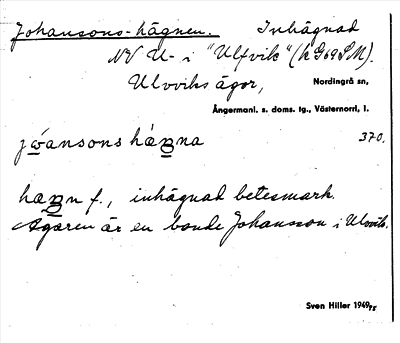 Johansons-hägnen. Inhägnad
NV U- i "Ulfvik" (k G69 SM).
Ulvviks ägor, Nordingrå sn,
Ångermanl. s. doms. tg., Västernorrl. l.
370.
f., inhägnad betesmark.
Ägaren är en bonde Johansson i Ulvvik.
Sven Hiller 1949